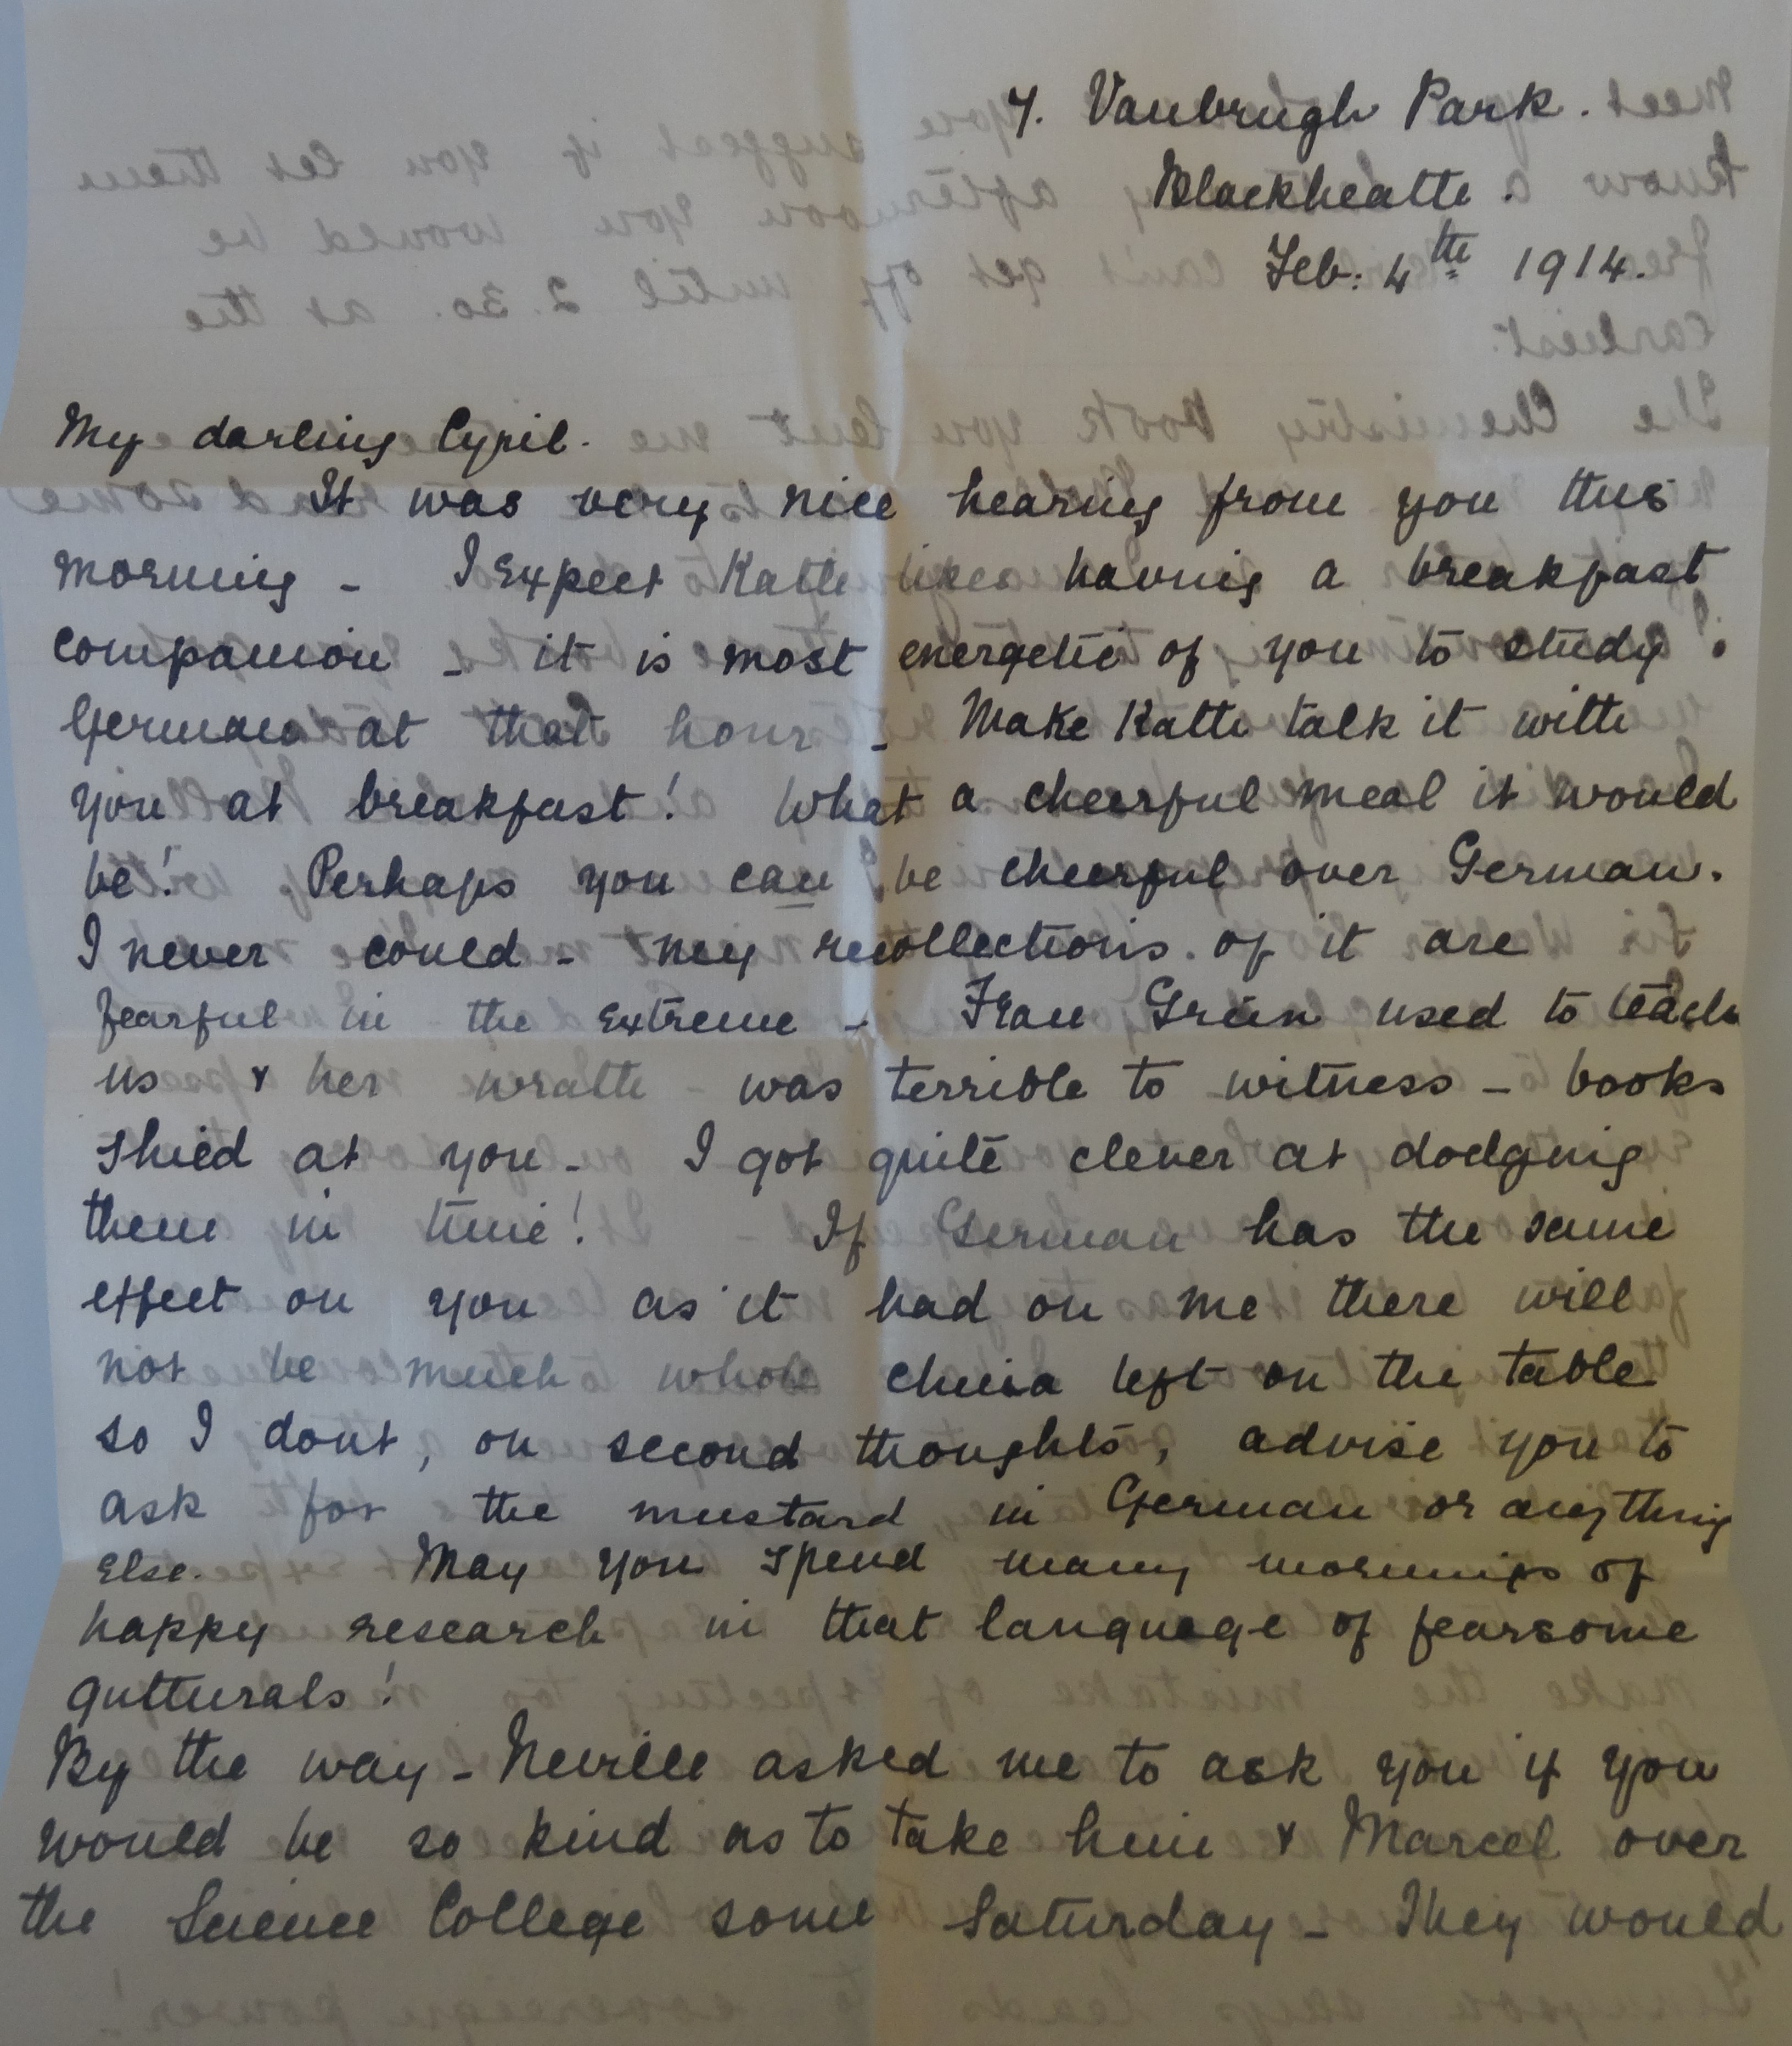 7. Vanbrugh Park.
Blackheath.
Feb: 4th 1914.
My darling Cyril.
It was very nice hearing from you this
morning - I expect Kath likes having a breakfast
companion - it is most energetic of you to study
German at that hour - Make Kath talk it with
you at breakfast! What a cheerful meal it would
be! Perhaps you can be cheerful over German.
I never could - my recollections of it are
fearful in the extreme - Frau Grün used to teach
us & her wrath - was terrible to witness - books
shied at you - I got quite clever at dodging
them in time! If German has the same
effect on you as it had on me there will
not be much whole china left on the table
so I dont, on second thoughts, advise you to
ask for the mustard in German or anything
else. May you spend many mornings of
happy research in that language of fearsome
gutturals!
By the way - Neville asked me to ask you if you
would be so kind as to take him & Marcel over
the Science College some Saturday - They would